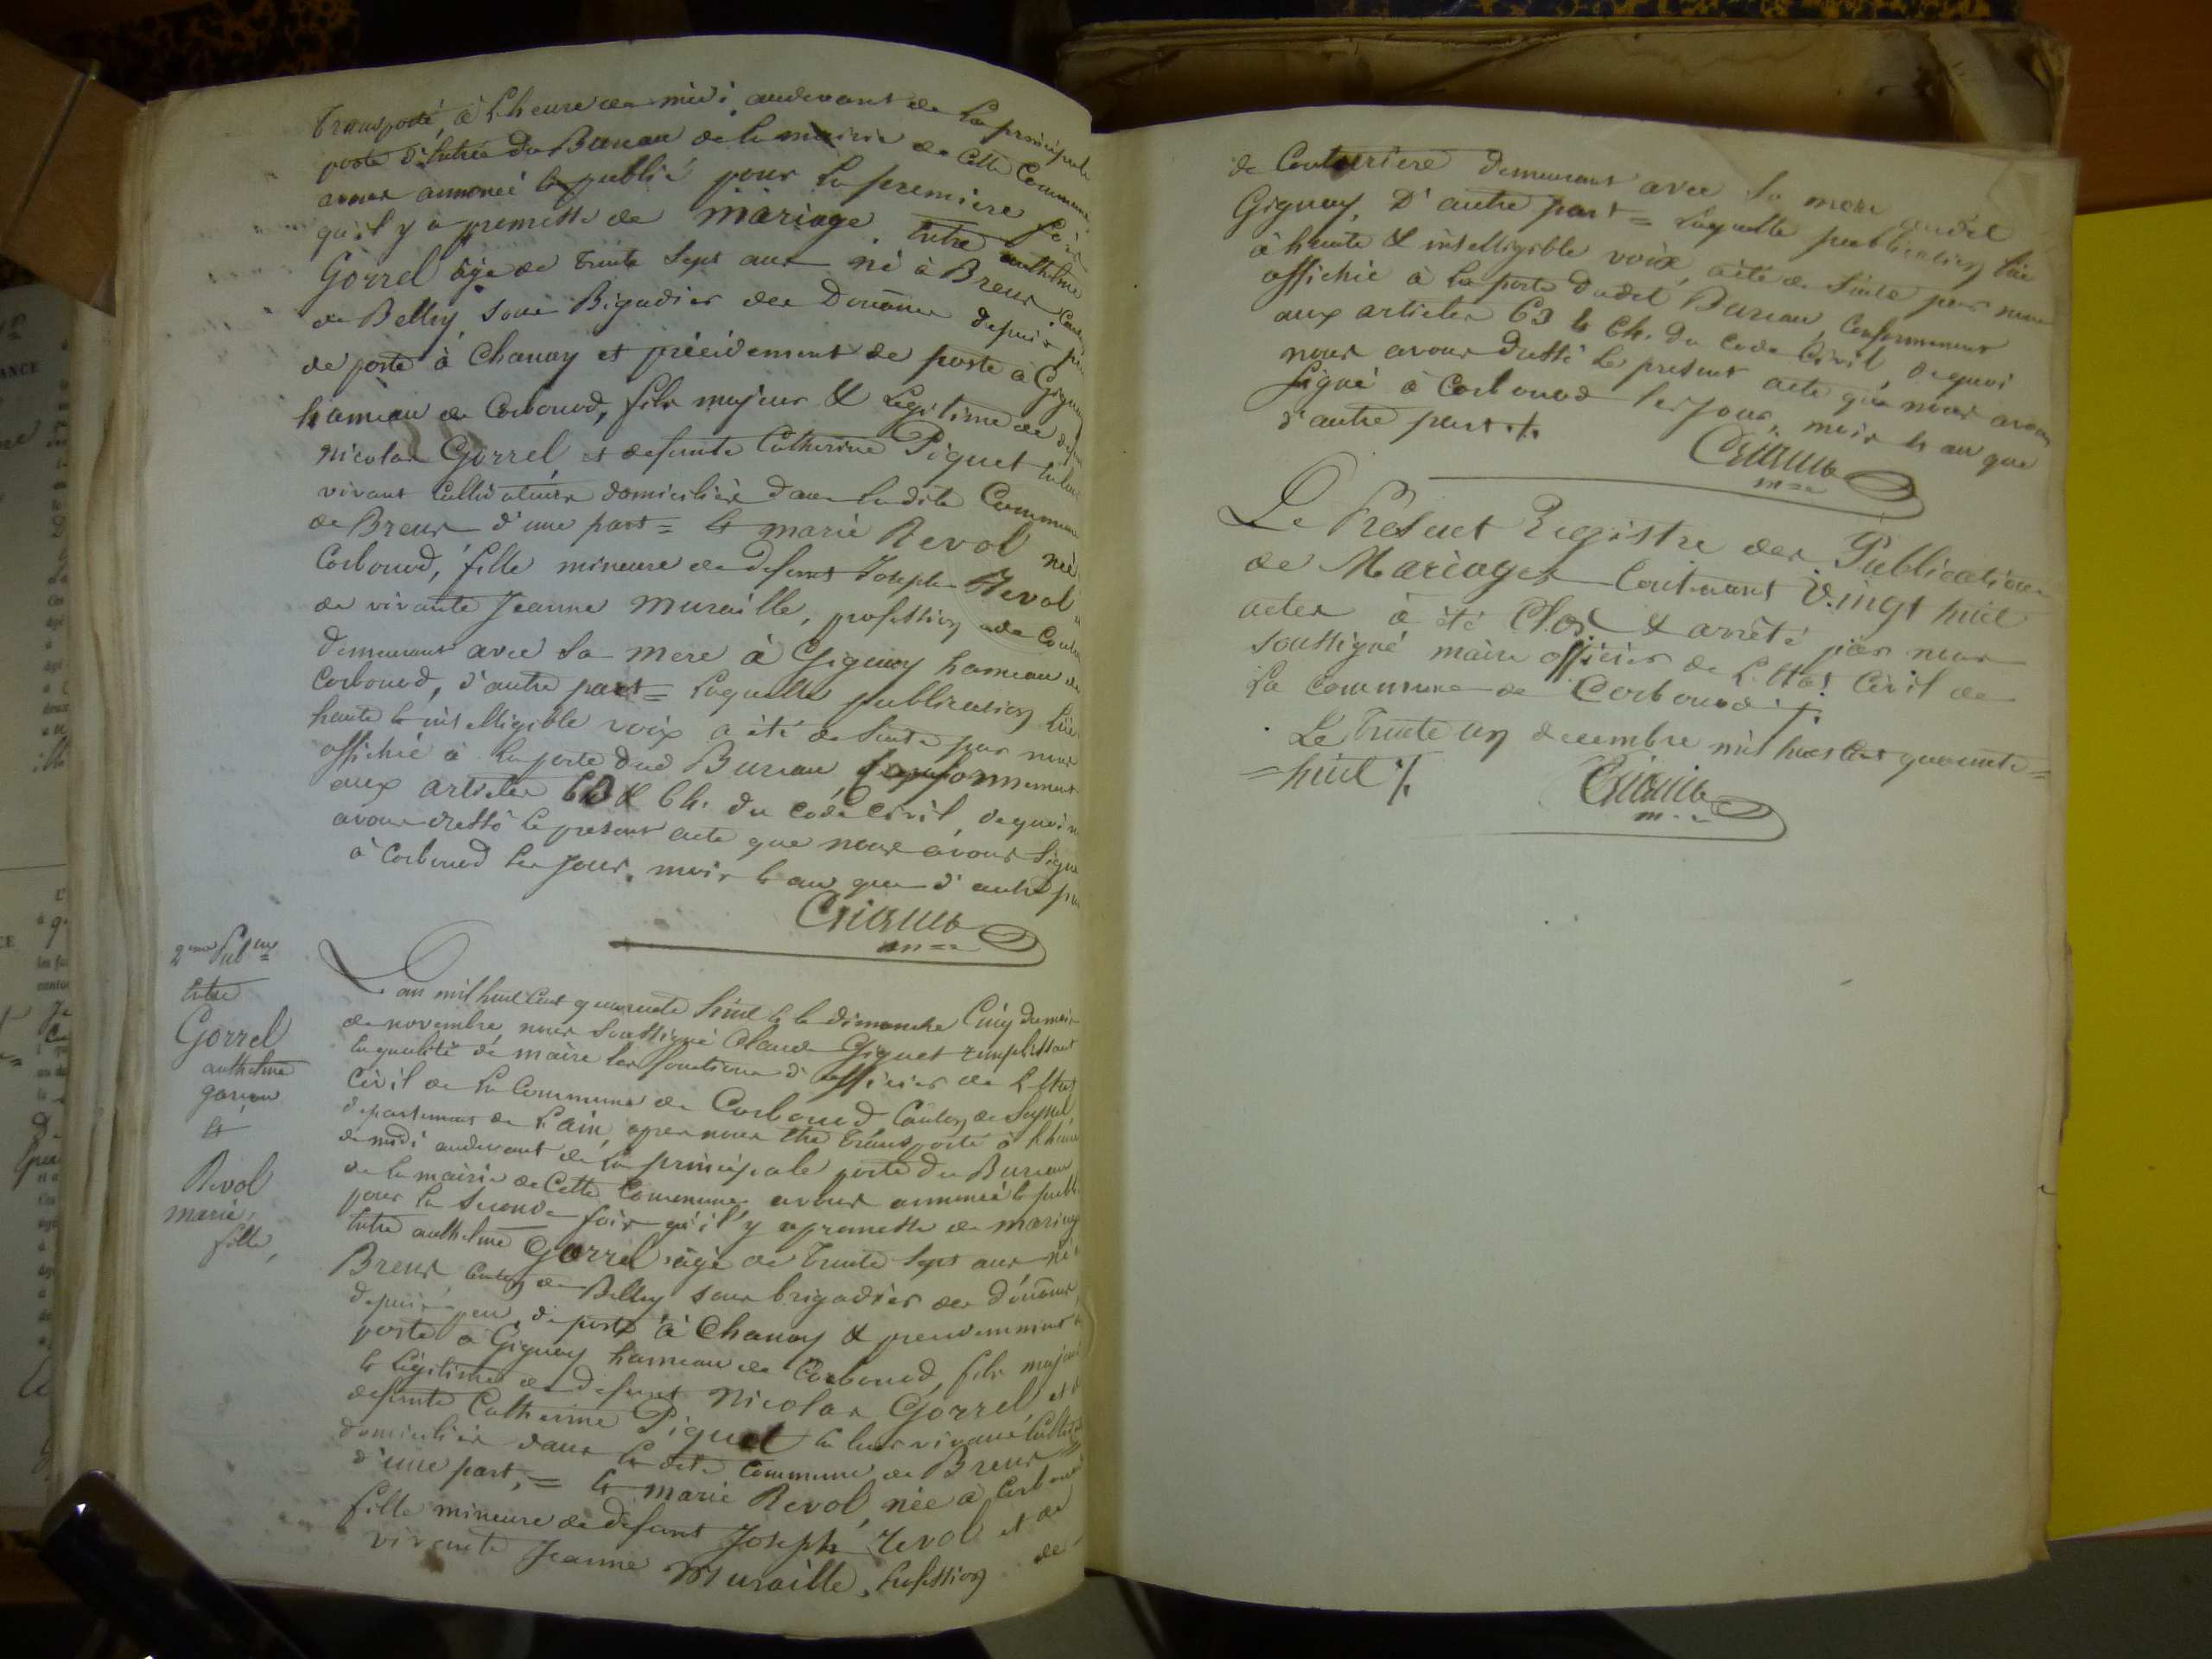 Transporté, à L'heure de midi audevant de la principale
porte d'Entrée du Bureau de la mairie de Cette Commune
avons annoncé & publié pour la premiere fois
qu'il y a promesse de mariage. Entre anthelme
Gorrel âgé de trente sept ans né à Brens
de Belley, sous Brigadier des Douanes depuis peu
de poste à Chanay et précédement de poste à Gignay
hameau de Corbonod, fils majeur & Légitime de
Nicolas Gorrel, et defunte Catherine Piguet
vivant Cultivateurs domiciliés dans la dite Commune
de Brens d'une part = & marie Revol née
Corbonod, fille mineure de defunt Joseph Revol
de vivante Jeanne Muraille, profession de
demeurant avec sa mere à Gignay hameau de
Corbonod, d'autre part = Laquelle publication Lüe
haute & intelligible voix a été de suite par nous
affiché à la porte dud Bureau Conformement
aux articles 63 & 64. du code Civil, de quoi
avons dressé le present acte que nous avons signé
à Corbonod les jour, mois & an que d'autre
2eme Pubon
Entre
Gorrel
anthelme
garçon
&
Revol
marie,
fille,
L'an mil huit Cent quarante huit & le dimanche Cinq du mois
de novembre nous soussigné Claude Giguet remplissant
En qualité de maire les fonctions d'officier de L'Etat
Civil de la Commune de Corbonod Canton de Seyssel,
departement de L'ain, apres nous etre transporté à L'heure
de midi audevant de la principale porte du Bureau
de la mairie de Cette Commune avons annoncé & publié
pour la seconde fois qu'il y a promesse de mariage
Entre anthelme Gorrel âgé de trente sept ans né
Brens Canton de Belley sous brigadier des douanes,
depuis peu, de poste à Chanay & precedemment
poste à Gignay hameau de Corbonod, fils majeur
& Légitime de defunt Nicolas Gorrel, et
defunte Catherine Piguet En leur vivant
domiciliés dans la dite Commune de Brens
d'une part, = & marie Revol, née à Corbonod
fille mineure de defunt Joseph Revol et de
vivante Jeanne Muraille, profession de
de Couturiere demeurant avec sa mere audit
Gignay, D'autre part = Laquelle publication Lüe
à haute & intelligible voix, a été de suite par nous
affichée à la porte dudit Bureau, Conformement
aux articles 63 & 64. du Code Civil, de quoi
nous avons dressé le present acte que nous avons
signé à Corbonod les jour, mois & an que
d'autre part ./.
Le Présent Registre des Publications
de Mariages Contenant Vingt huit
actes à été Clos & arrêté par nous
soussigné maire officier de L'Etat Civil de
La Commune de Corbonod ./.
Le Trente un decembre mil huit Cent quarante =
= huit ./.